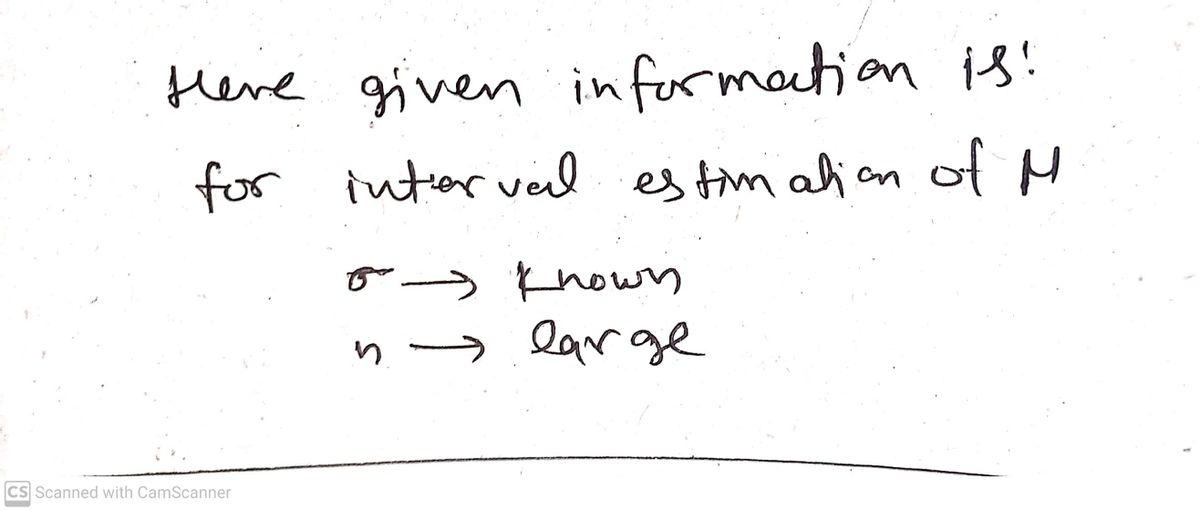 Here given information is:
for interval estimation of μ
σ → known
n → large
CS Scanned with CamScanner